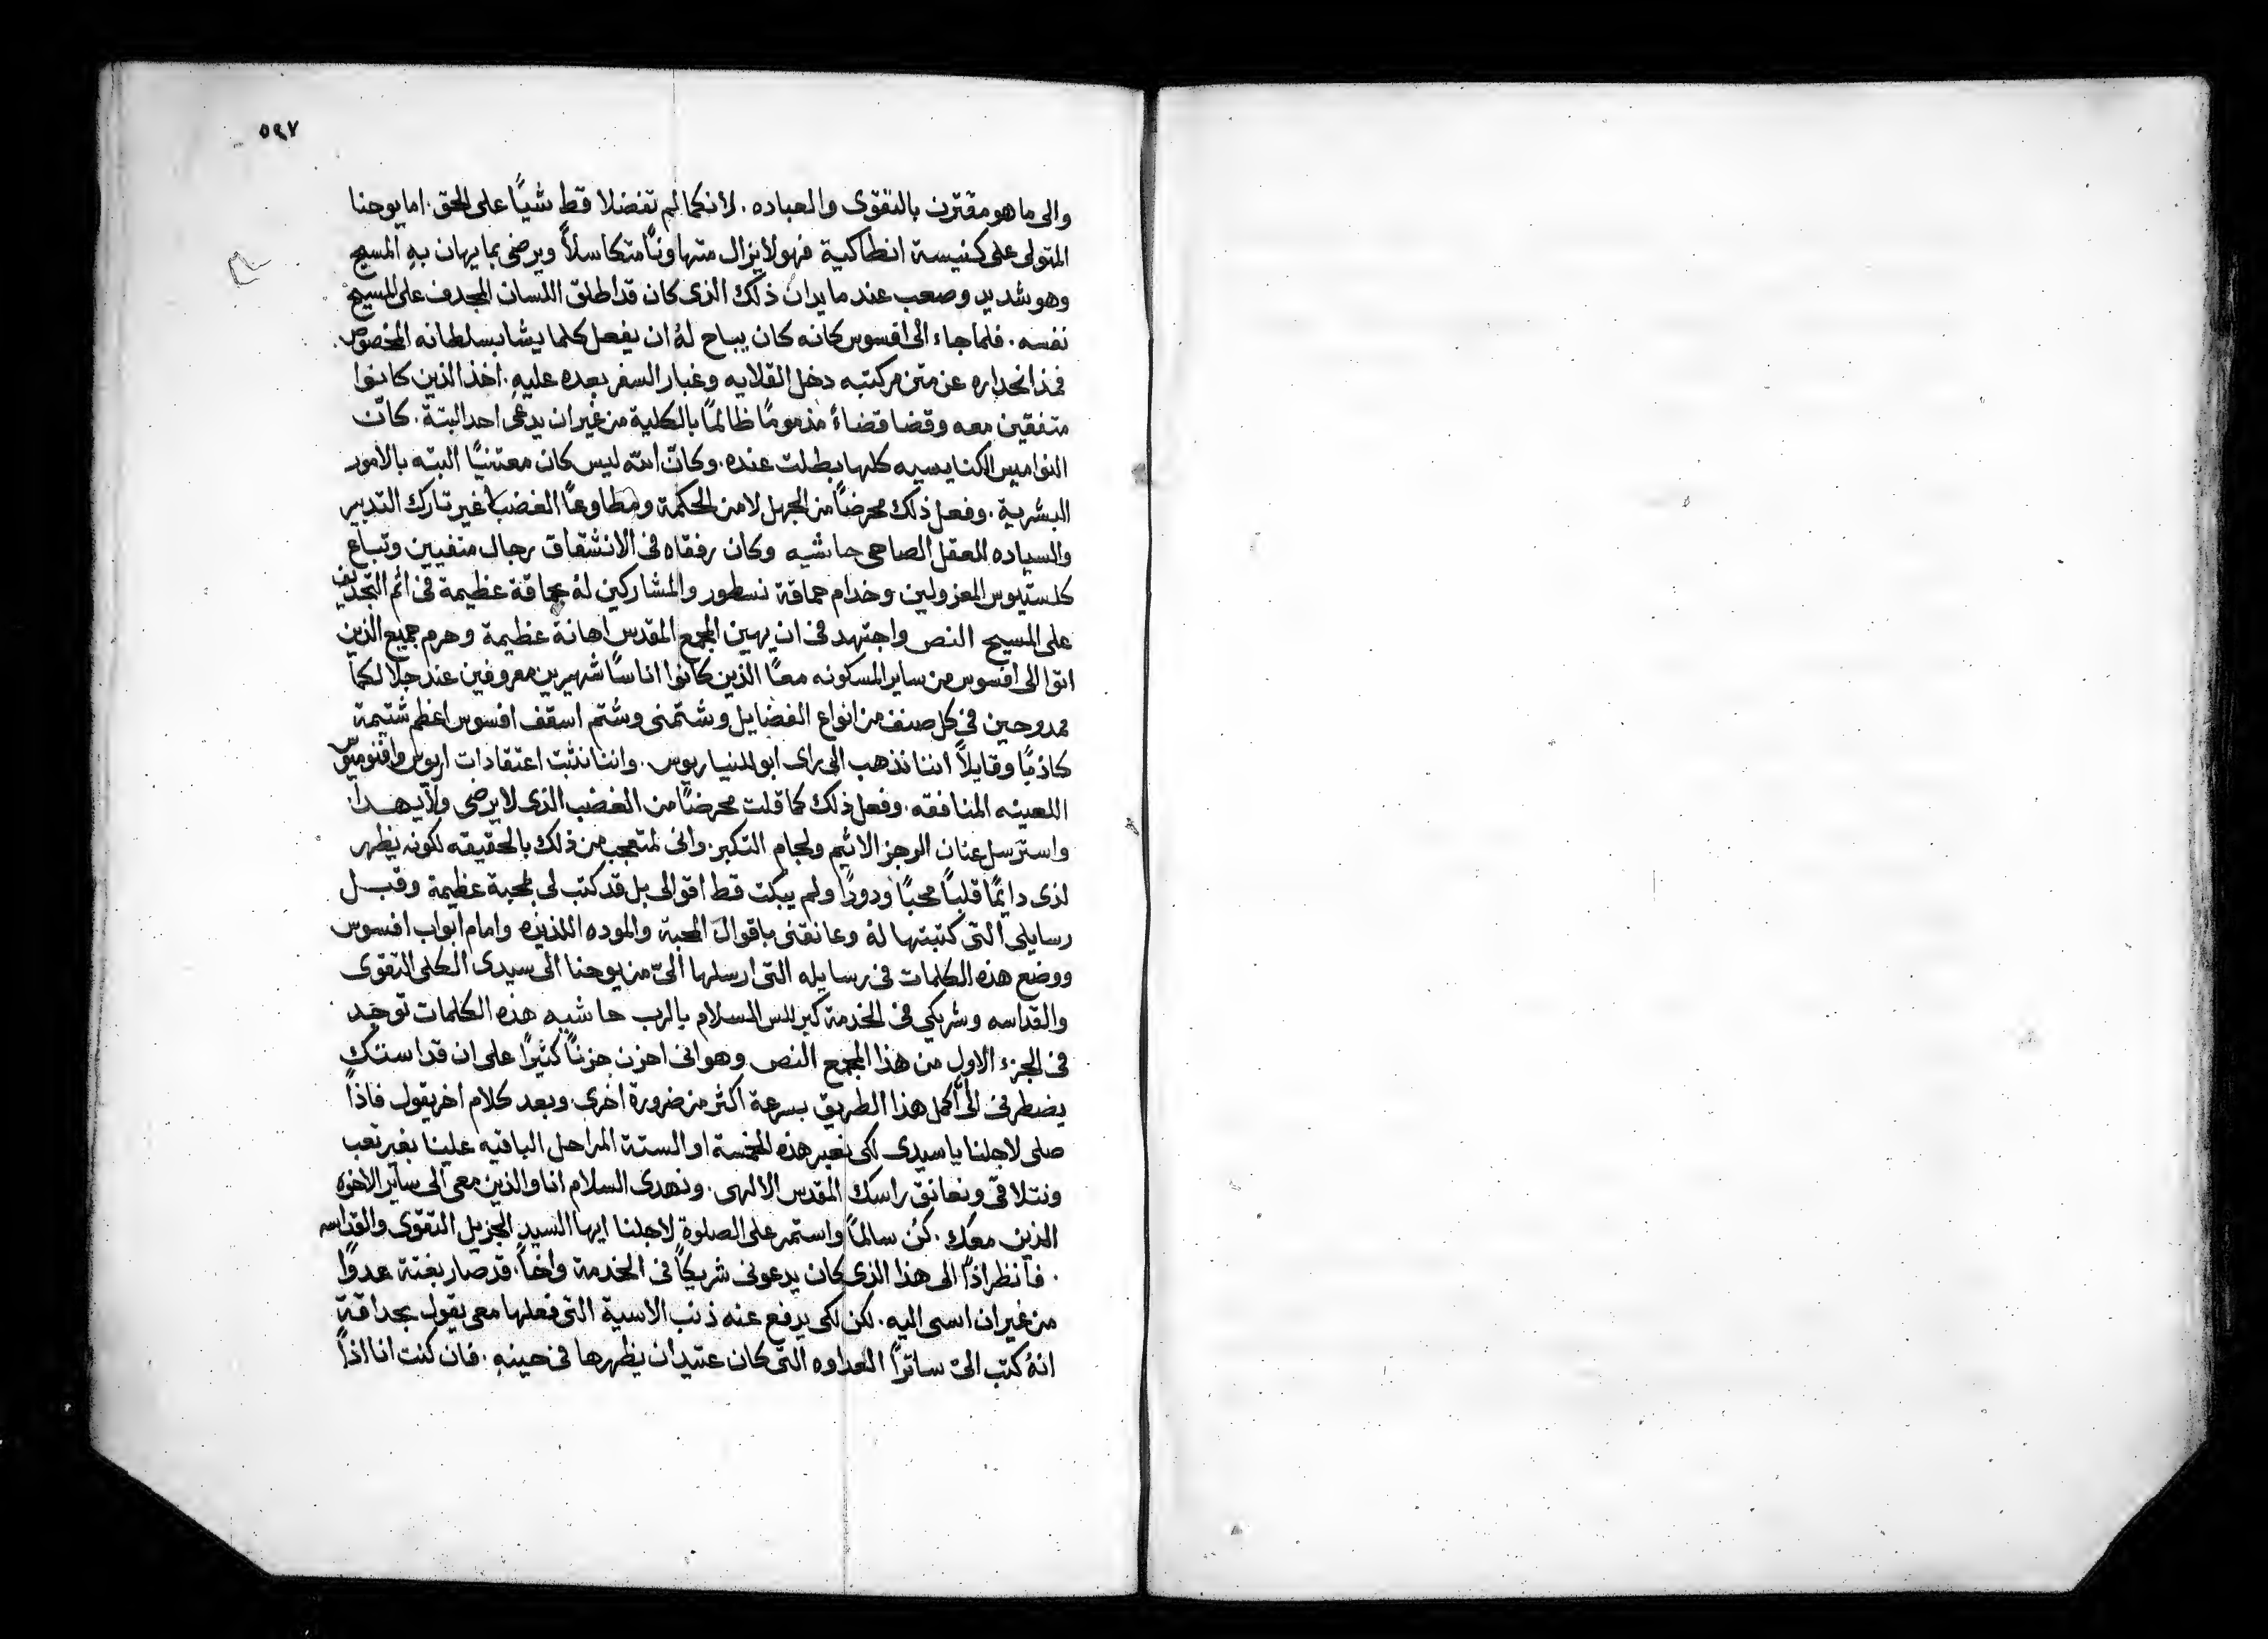 ٥٩٧
والى ما هو مقترن بالتقوى والعباده . لانكما لم تفضلا قط شيًا على الحق . اما يوحنا
المتولى على كنيسة انطاكية فهو لا يزال متهاونًا متكاسلاً ويرضى بما يهان به المسيح
وهو شديد وصعب عند ما يدان ذلك الذى كان قد اطلق اللسان المجدف على المسيح
نفسه . فلما جاء الى افسوس كانه كان يباح لهُ ان يفعل كلما يشا بسلطانه المخصوص .
فمذ انحداره عن متن مركبته دخل القلايه وغبار السفر بعده عليهِ . اخذ الذين كانوا
متفقين معه وقضا قضاءً مذمومًا ظالمًا بالكلية من غير ان يدعى احد البتة . كانّ
النواميس الكنايسيه كلها بطلت عنده . وكانّ الله ليس كان معتنيًا البته بالامور
البشرية . وفعل ذلك محرضًا من الجهل لا من الحكمة ومطاوعًا الغضب غير تارك التدبير
والسياده للعقل الصاحى حاشيه وكان رفقاه فى الانشقاق رجال منفيين وتباع
كلستيوس المعزولين وخدام حماقة نسطور والمشاركين لهُ بحماقة عظيمة فى اثم التجديف
على المسيح النص واجتهد فى ان يهين المجمع المقدس اهانة عظيمة وحرم جميع الذين
اتوا الى افسوس من ساير المسكونه معًا الذين كانوا اناسًا شهيرين معروفين عند جلالكما
ممدوحين فى كل صنف من انواع الفضايل وشتمنى وشتم اسقف افسوس اعظم شتيمة
كاذبًا وقايلاً اننا نذهب الى راى ابوللنياريوس . واننا نثبت اعتقادات اريوس وافنوميوس
اللعينه المنافقه . وفعل ذلك كما قلت محرضًا من الغضب الذى لا يرضى ولا يهدا
واسترسل عنان الرجز الاثيم ولجام التكبر . وانى لمتعجب من ذلك بالحقيقه لكونه يظهر
لدى دايمًا قلبًا محبًا ودودًا ولم يبكت قط اقوالى بل قد كتب لى بمحبة عظيمة وقبل
رسايلى التى كتبتها لهُ وعانقنى باقوال المحبة والموده اللذيذه وامام ابواب افسوس
ووضع هذه الكلمات فى رسايله التى ارسلها الىّ من يوحنا الى سيدى الكلى التقوى
والقداسه وشريكي فى الخدمة كيرللس السلام بالرب حاشيه هذه الكلمات توجد
فى الجزء الاول من هذا المجمع النص وهو انى احزن حزنًا كثيرًا على ان قداستك
يضطرنى الى اكمل هذا الطريق بسرعة اكثر من ضرورة اخرى وبعد كلام اخر يقول فاذًا
صلى لاجلنا يا سيدى لكى نعبر هذه الخمسة او الستة المراحل الباقيه علينا بغير تعب
ونتلاقى ونعانق راسك المقدس الالهى . ونهدى السلام انا والذين معى الى ساير الاخوه
الذين معك . كن سالمًا واستمر على الصلوة لاجلنا ايها السيد الجزيل التقوى والقداسه
. فانظر اذًا الى هذا الذى كان يدعونى شريكًا فى الخدمة واخًا . قد صار بغتة عدوًا
من غير ان اسى اليه . لكن لكى يرفع عنه ذنب الاسية التى فعلها معى يقول بحداقةٍ
انهُ كتب الىّ ساترًا العداوه التى كان عتيد ان يظهرها فى حينهِ . فان كنت انا اذًا